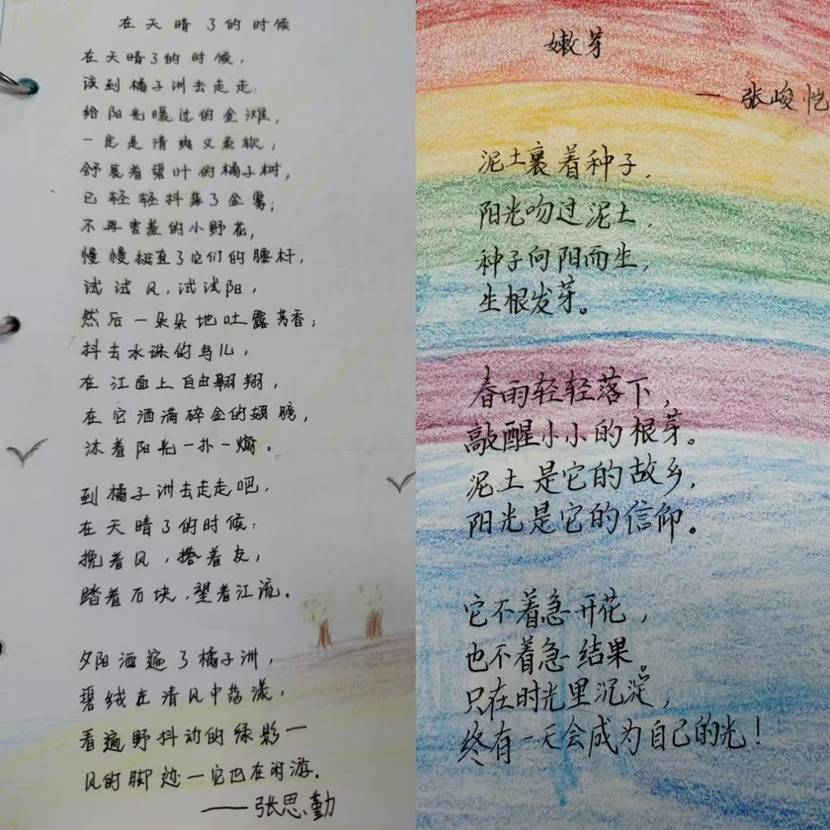 在天晴了的时候
在天晴了的时候，
该到橘子洲去走走：
给阳光暖过的金滩，
一定是清爽又柔软；
舒展着碧叶的橘子树，
已轻轻抖落了金雾；
不再害羞的小野花，
慢慢挺直了它们的腰杆，
试试风，试试阳，
然后一朵朵地吐露芳香；
抖去水珠的鸟儿，
在江面上自由翱翔，
在它洒满碎金的翅膀，
沐着阳光一扑一煽。
到橘子洲去走走吧，
在天晴了的时候：
挽着风，搭着友，
踏着石块，望着江流。
夕阳洒遍了橘子洲，
碧绒在清风中荡漾，
看遍野抖动的绿影一
风的脚迹一它也在闲游。
——张思勤
嫩芽
—张峻恺
泥土裹着种子，
阳光吻过泥土，
种子向阳而生，
生根发芽。
春雨轻轻落下，
敲醒小小的根芽。
泥土是它的故乡，
阳光是它的信仰。
它不着急开花，
也不着急结果。
只在时光里沉淀，
终有一天会成为自己的光！